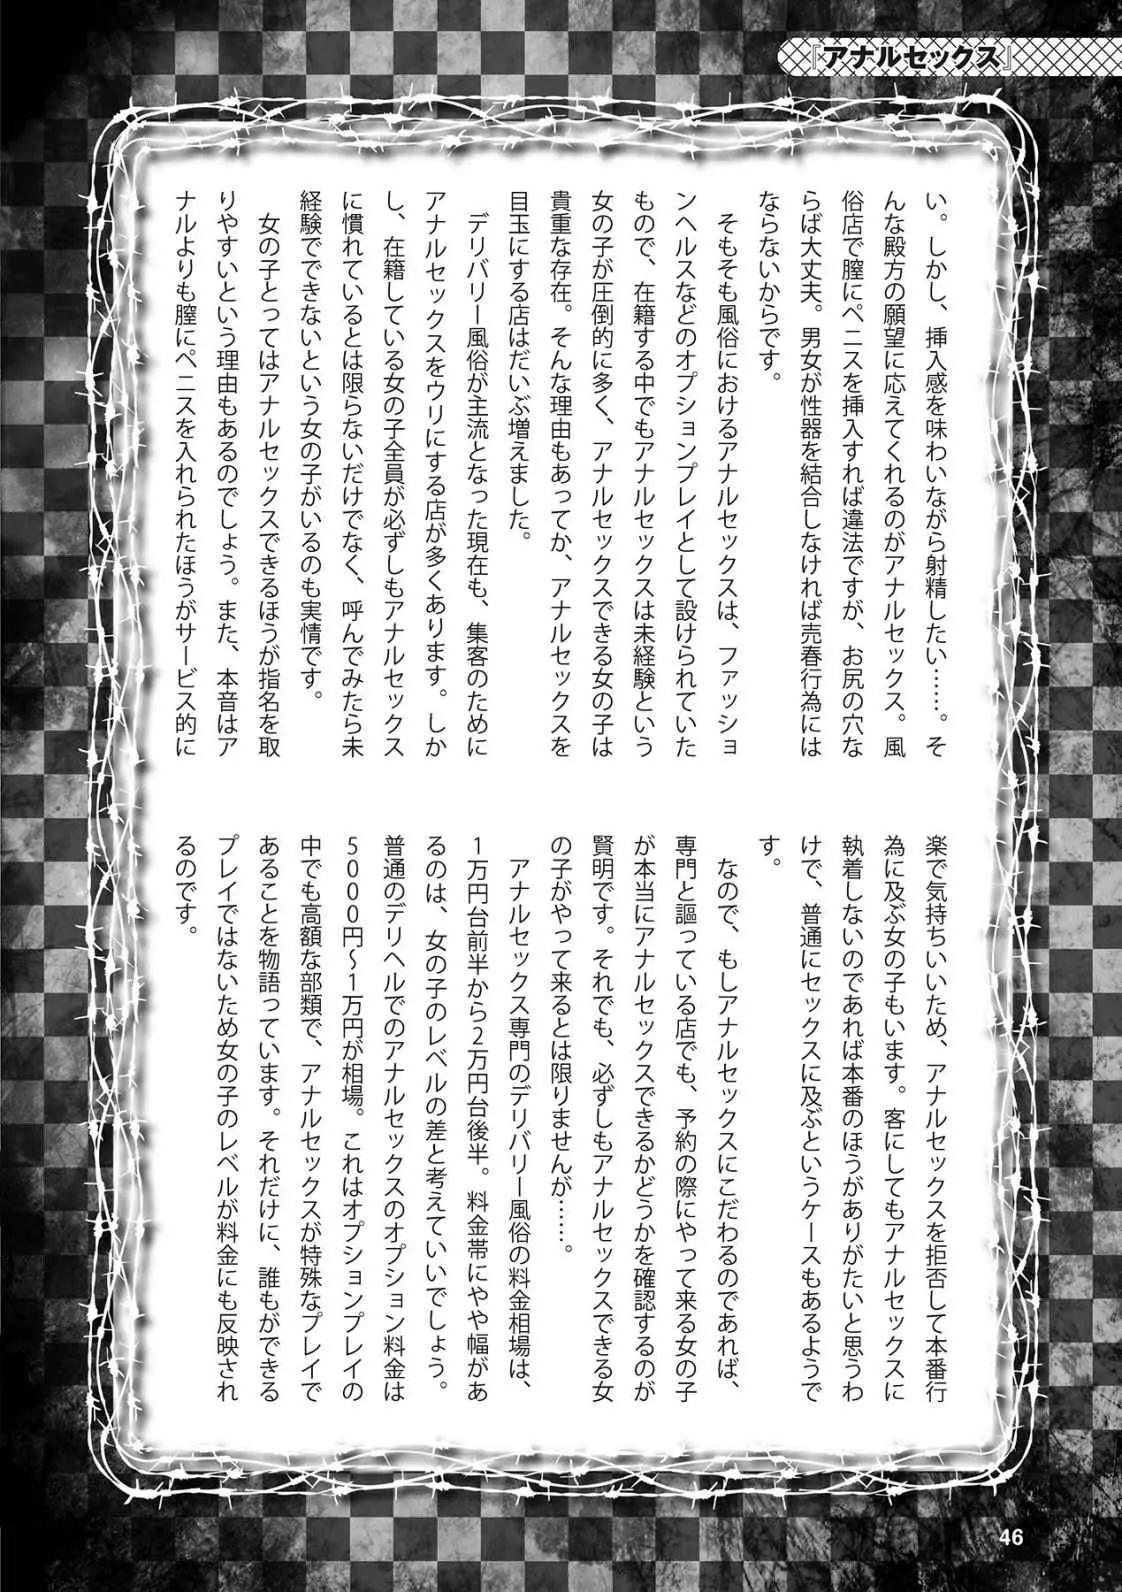 『アナルセックス』
い。しかし、挿入感を味わいながら射精したい……。そ
んな殿方の願望に応えてくれるのがアナルセックス。風
俗店で膣にペニスを挿入すれば違法ですが、お尻の穴な
らば大丈夫。男女が性器を結合しなければ売春行為には
ならないからです。
そもそも風俗におけるアナルセックスは、ファッショ
ンヘルスなどのオプションプレイとして設けられていた
もので、在籍する中でもアナルセックスは未経験という
女の子が圧倒的に多く、アナルセックスできる女の子は
貴重な存在。そんな理由もあってか、アナルセックスを
目玉にする店はだいぶ増えました。
デリバリー風俗が主流となった現在も、集客のために
アナルセックスをウリにする店が多くあります。しか
し、在籍している女の子全員が必ずしもアナルセックス
に慣れているとは限らないだけでなく、呼んでみたら未
経験でできないという女の子がいるのも実情です。
女の子とってはアナルセックスできるほうが指名を取
りやすいという理由もあるのでしょう。また、本音はア
ナルよりも膣にペニスを入れられたほうがサービス的に
楽で気持ちいいため、アナルセックスを拒否して本番行
為に及ぶ女の子もいます。客にしてもアナルセックスに
執着しないのであれば本番のほうがありがたいと思うわ
けで、普通にセックスに及ぶというケースもあるようで
す。
なので、もしアナルセックスにこだわるのであれば、
専門と謳っている店でも、予約の際にやって来る女の子
が本当にアナルセックスできるかどうかを確認するのが
賢明です。それでも、必ずしもアナルセックスできる女
の子がやって来るとは限りませんが……。
アナルセックス専門のデリバリー風俗の料金相場は、
1万円台前半から2万円台後半。料金帯にやや幅があ
るのは、女の子のレベルの差と考えていいでしょう。
普通のデリヘルでのアナルセックスのオプション料金は
5000円〜1万円が相場。これはオプションプレイの
中でも高額な部類で、アナルセックスが特殊なプレイで
あることを物語っています。それだけに、誰もができる
プレイではないため女の子のレベルが料金にも反映され
るのです。
46